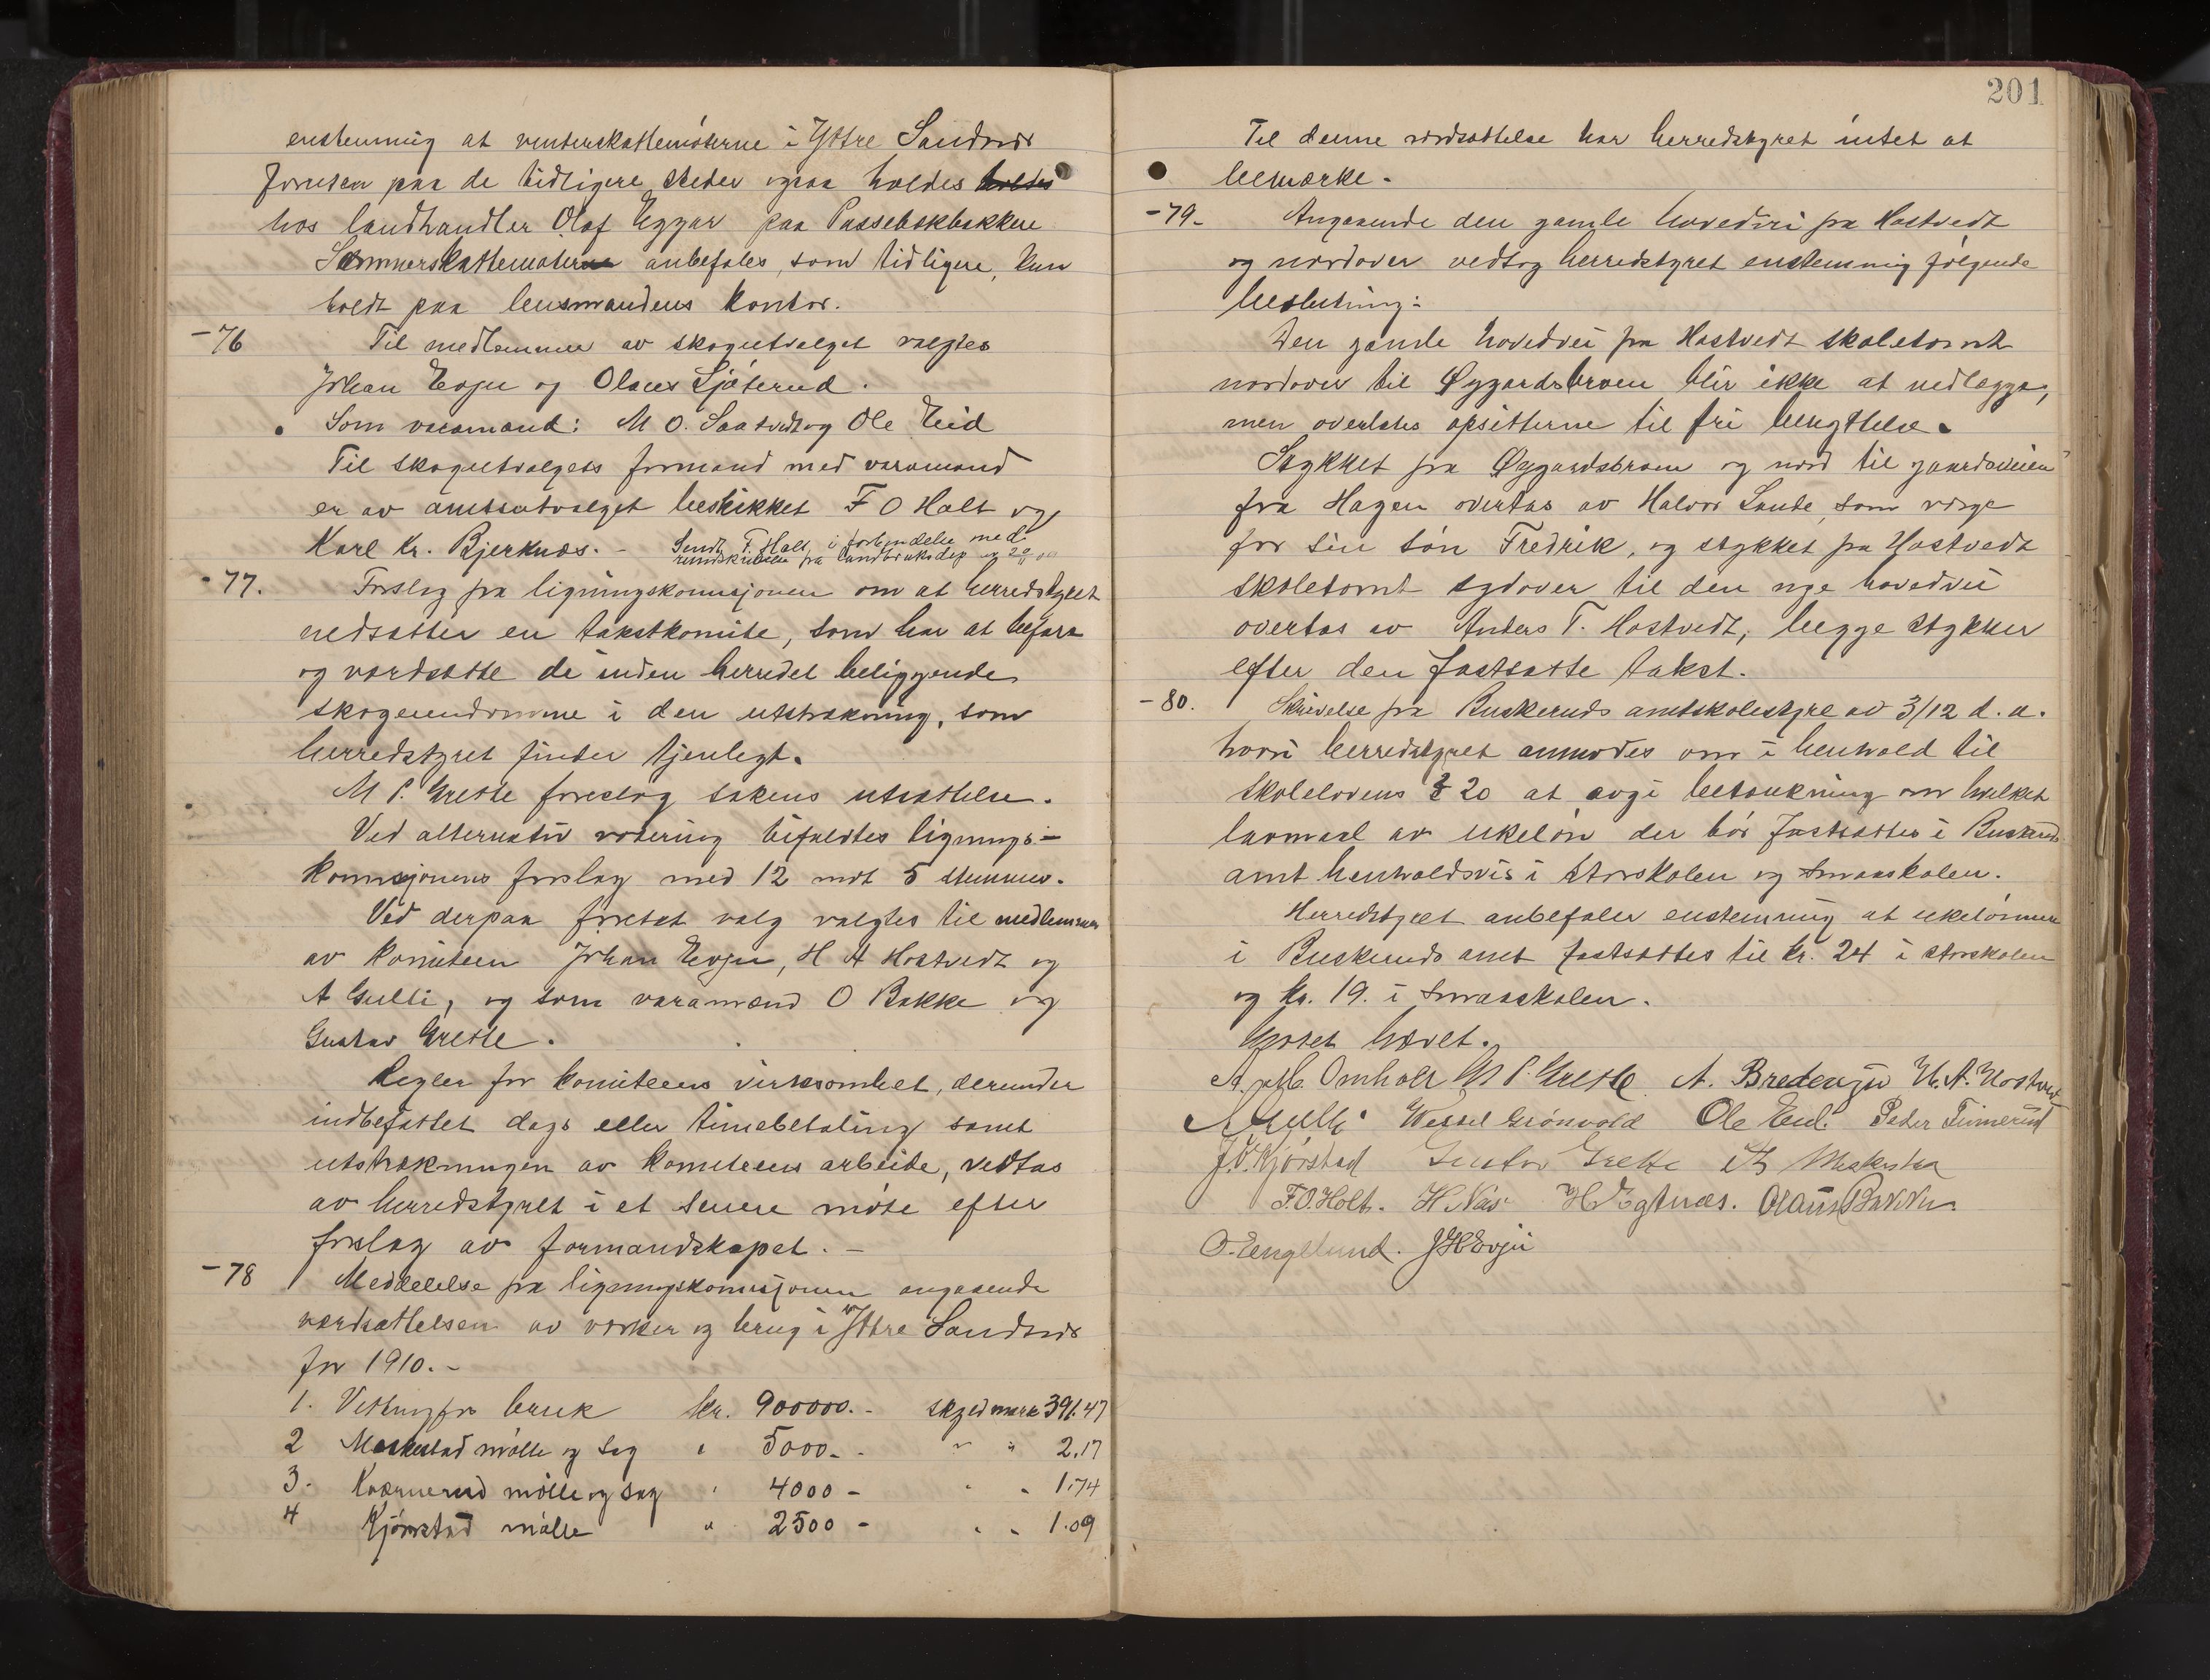 enstemmig at vinterskattemøterne i Yttre Sandsvær
foruten paa de tidligere steder ogsaa holdes holdes
hos landhandler Olaf Eggar paa Passebækbakken
Sommerskattemøterne anbefales, som tidligere, kun
holdt paa lensmandens kontor.
-76 Til medlemmer av skogutvalget valgtes
Johan Evju og Olaus Sjøterud.
Som varamænd: M O. Saatvedt og Ole Eid
Til skogutvalgets formand med varamand
er av amtsutvalget beskikket F O Holt og
Karl Kr. Bjerknæs. - Sendt F. Holt i forbindelse med
rundskrivelse fra landbruksdep
-77. Forslag fra ligningskomisjonen om at herredstyret
nedsætter en takstkomite, som har at befare
og værdsætte de inden herredet beliggende
skogeiendomme i den utstrækning, som
herredstyret finder tjenligt.
M P. Grette foreslog sakens utsættelse.
Ved alternativ votering bifaldtes lignings-
komisjonens forslag med 12 mot 5 stemmer.
Ved derpaa foretat valg valgtes til medlemmer
av komiteen Johan Evju, H A Hostvedt og
A Gulli, og som varamænd O Bakke og
Gustav Grette.
Regler for komiteens virksomhet, derunder
indbefattet dags eller timebetaling samt
utstrækningen av komiteens arbeide, vedtas
av herredstyret i et senere møte efter
forslag av formandskapet. -
-78 Meddelelse fra ligningskomisjonen angaaende
værdsættelsen av verker og bruk i Yttre Sandsvær
for 1910. -
1. Vittingfos bruk kr. 900000. - skyldmark 391.47
2 Moskestad mølle og sag " 5000. - " " 2.17
3. Kværnerud mølle og sag " 4000 - " " 1.74
4 Kjørstad mølle " 2500 - " " 1.09
201
Til denne værdsættelse har herredstyret intet at
bemærke.
-79- Angaaende den gamle hovedvei fra Hostvedt
og nordover vedtog herredstyret enstemmig følgende
beslutning:
Den gamle hovedvei fra Hostvedt skoletomt
nordover til Øygardsbroen blir ikke at nedlægge,
men overlates opsitterne til fri benyttelse.
Stykket fra Øygardsbroen og nord til gaardsveien
fra Hagen overtas av Halvor Sande, som verge
for sin søn Fredrik, og stykket fra Hostvedt
skoletomt sydover til den nye hovedvei
overtas av Anders T. Hostvedt, begge stykker
efter den fastsatte takst.
-80. Skrivelse fra Buskeruds amtskolestyre av 3/12 d. a.
hvori herredstyret anmodes om i henhold til
skolelovens § 20 at avgi betænkning om hvilket
lavmaal av ukeløn der bør fastsættes i Buskeruds
amt henholdsvis i storskolen og smaaskolen.
Herredstyret anbefaler enstemmig at ukelønnen
i Buskeruds amt fastsættes til kr. 24 i storskolen
og kr. 19. i smaaskolen.
Møtet hævet.
Omholt M P. Grette. A. Bredevju H. A. Hostvedt
A Gulli Wessel Grönvold Ole Eid. Peder Timerud
J. O. Kjörstad Gustav Grette Moskestad
F. O. Holt. H. Næs H. Vegtnæs. Olaus Bakken
O. Englund. J H Evju